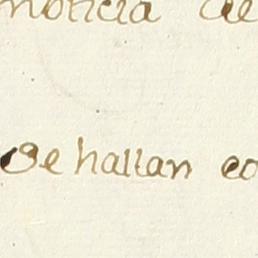 noticia de
Se hallan co